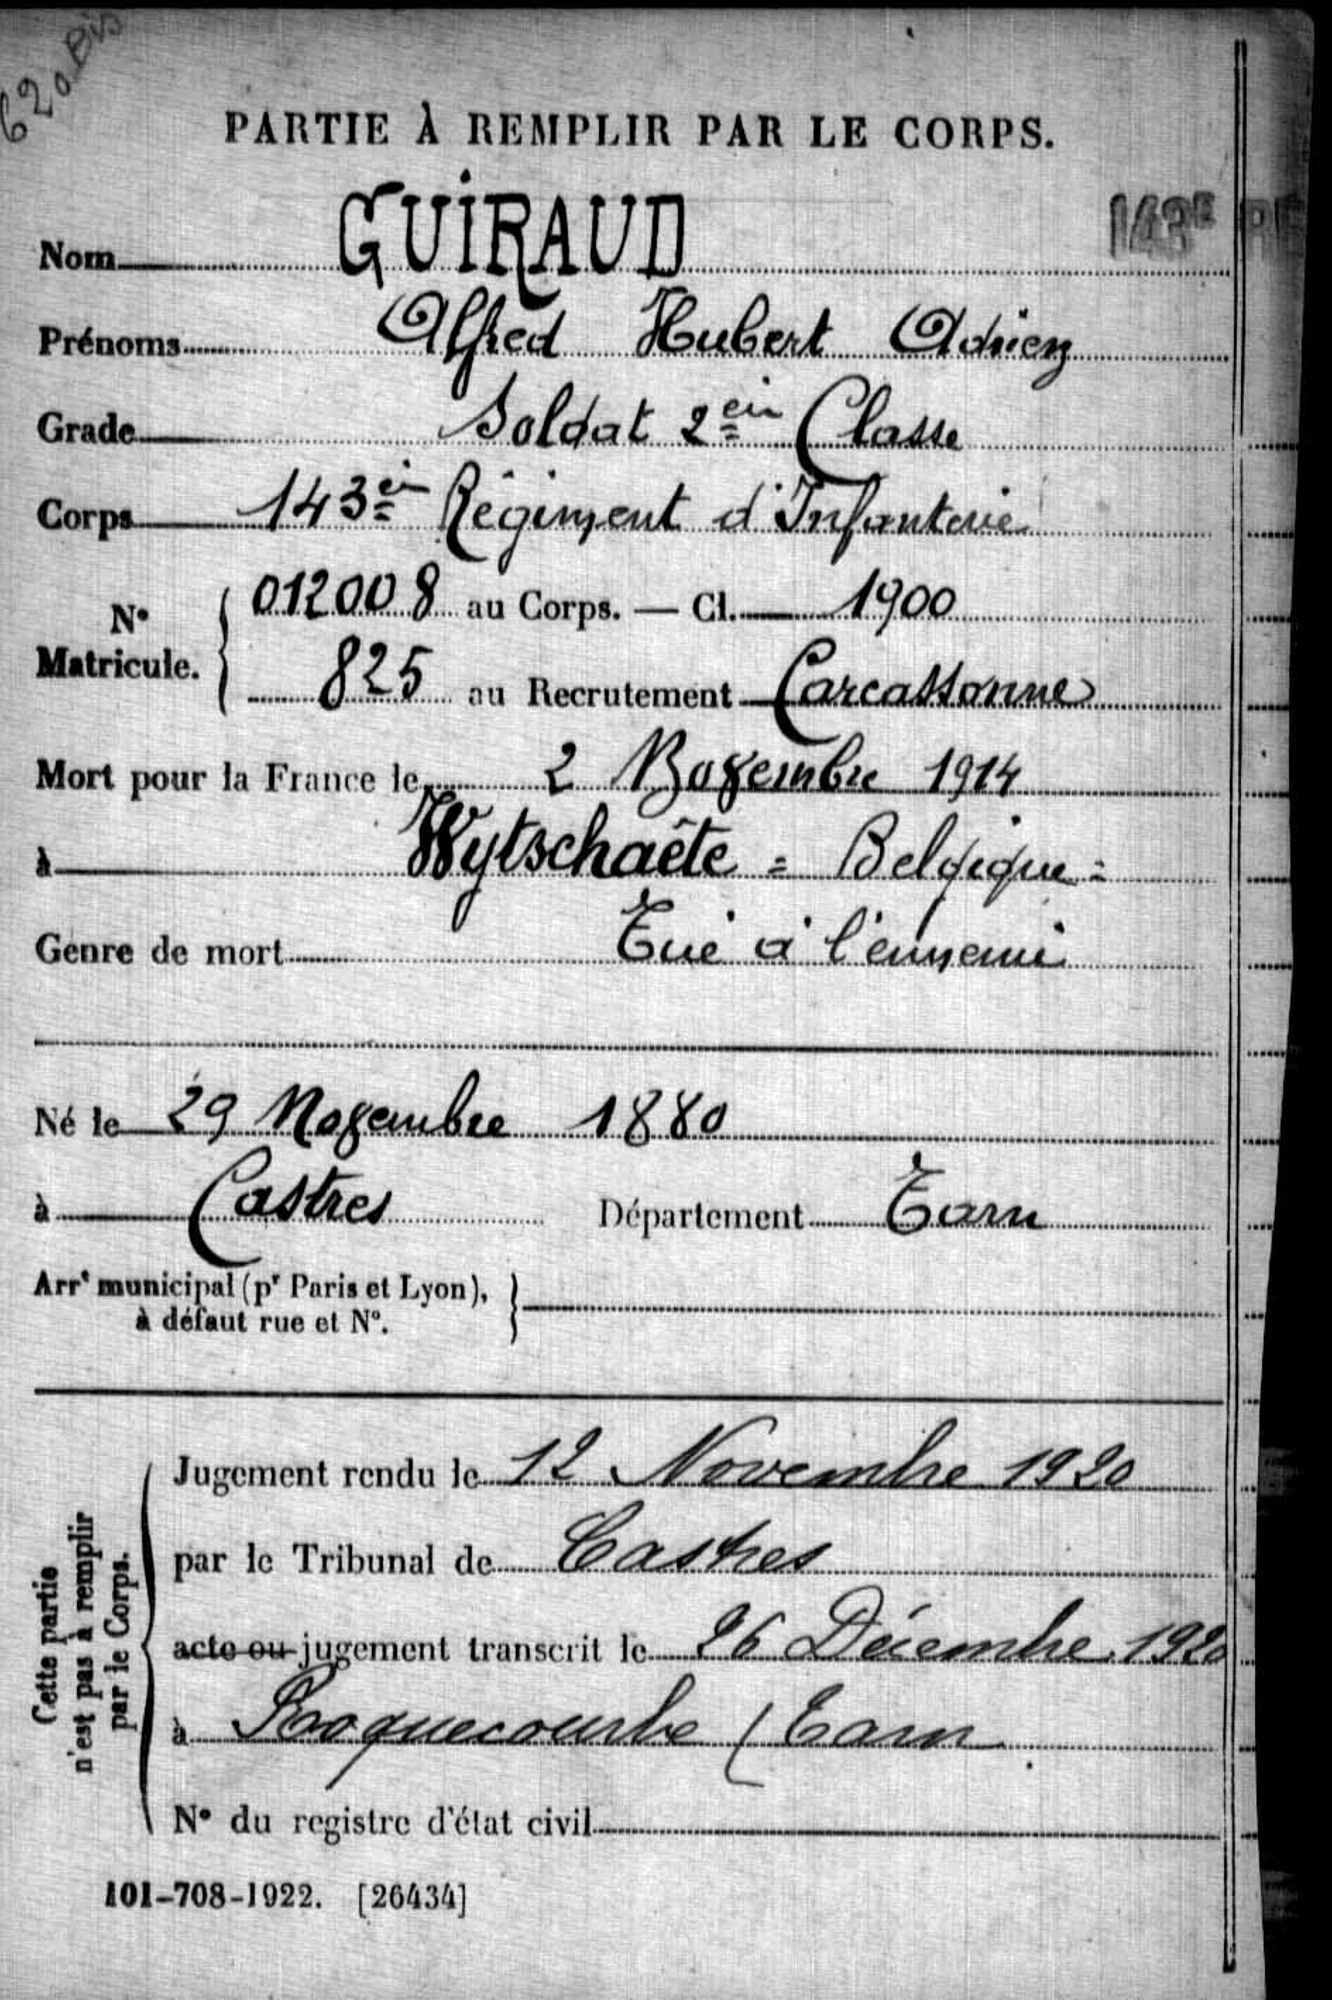 620 Bis
PARTIE À REMPLIR PAR LE CORPS.
143E RE
Nom GUIRAUD
Prénoms Alfred Hubert Adrien
Grade Soldat 2eme Classe
Corps 143e Régiment d'Infanterie
N° Matricule. { 012008 au Corps. — Cl. 1900
825 au Recrutement Carcassonne
Mort pour la France le 2 Novembre 1914
à Wytschaëte = Belgique =
Genre de mort Tué à l'ennemi
Né le 29 Novembre 1880
à Castres Département Tarn
Arrt municipal (pr Paris et Lyon), }
à défaut rue et N°.
Cette partie
n'est pas à remplir
par le Corps.
Jugement rendu le 12 Novembre 1920
par le Tribunal de Castres
acte ou jugement transcrit le 26 Décembre 1920
à Roquecourbe (Tarn
N° du registre d'état civil
101-708-1922. [26434]